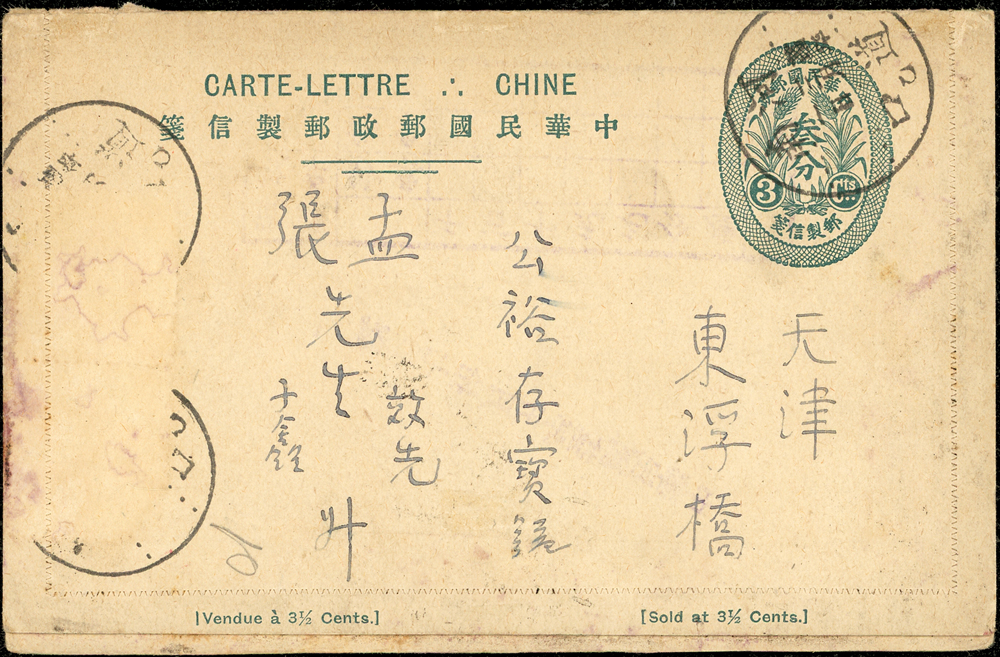 CARTE-LETTRE ∴ CHINE
中華民國郵政郵製信箋
中華民國郵政
叁分
3 CTS
郵製信箋
天津
東浮橋
公裕存寶號
孟效先
張子鑫
先生 升
[Vendue à 3½ Cents.]
[Sold at 3½ Cents.]